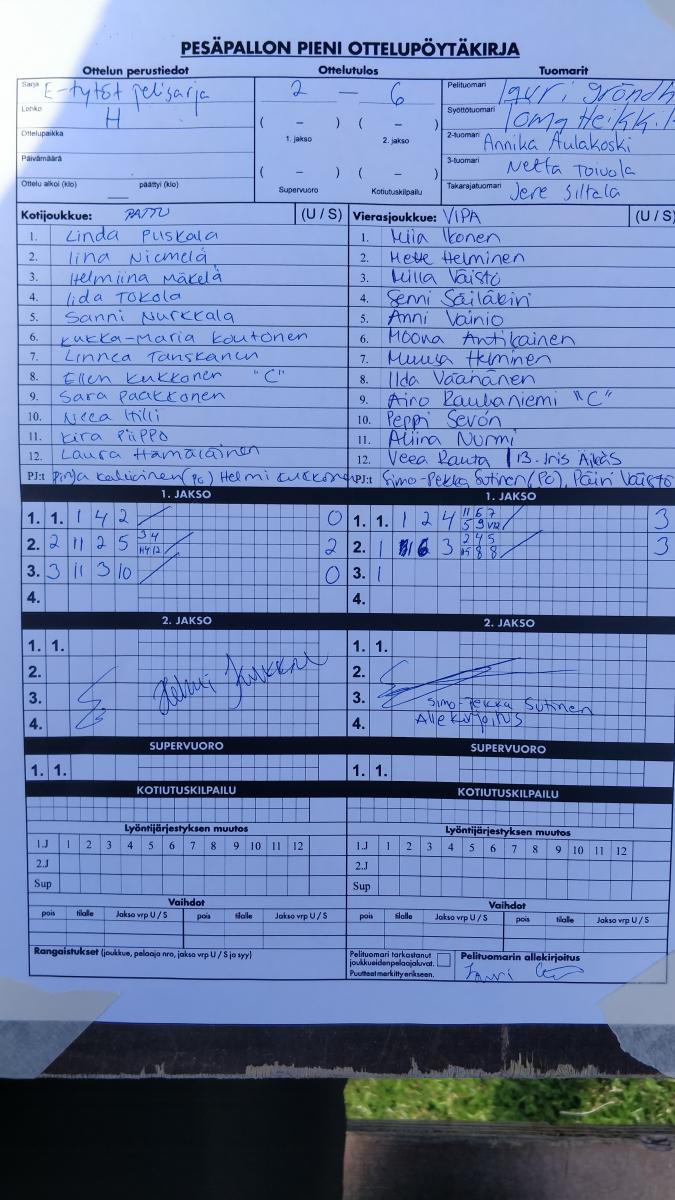 PESÄPALLON PIENI OTTELUPÖYTÄKIRJA
Ottelun perustiedot Ottelutulos Tuomarit
Sarja E-tytöt pelisarja
Lohko H
Ottelupaikka
Päivämäärä
Ottelu alkoi (klo) päättyi (klo)
2 — 6
( – ) ( – )
1. jakso 2. jakso
( – ) ( – )
Supervuoro Kotiutuskilpailu
Pelituomari
Syöttötuomari
2-tuomari Annika Aulakoski
3-tuomari Netta Toivola
Takarajatuomari Jere Siltala
Kotijoukkue: PATTU (U / S)
1. Linda Puskala
2. Iina Niemelä
3. Helmiina Mäkelä
4. Iida Tokola
5. Sanni Nurkkala
6. Kukka-Maria Koutonen
7. Linnea Tanskanen
8. Ellen Kukkonen "C"
9. Sara Paakkonen
10. Neea Hilli
11. Kira Piippo
12. Laura Hämäläinen
PJ:t Pinja (PC) Helmi Kukkonen
Vierasjoukkue: VIPA (U / S)
1. Miia Ikonen
2. Mette Helminen
3. Milla Väistö
4. Senni Säiläkivi
5. Anni Vainio
6. Moona Antikainen
7. Minna Helminen
8. Ilda Väänänen
9. Aino Rauhaniemi "C"
10. Peppi Sevón
11. Aliina Nurmi
12. Veea Rauta / 13. Iris Äikäs
PJ:t Simo-Pekka Sutinen (PC), Päivi Väistö
1. JAKSO
1. 1. 1 4 2 0
2. 2 11 2 5 3 4 11 4 12 2
3. 3 11 3 10 0
4.
1. JAKSO
1. 1. 1 2 4 11 6 7 3
2. 1 6 3 2 4 5 3
3. 1
4.
2. JAKSO
1. 1.
2.
3.
4.
Helmi Kukkonen
2. JAKSO
1. 1.
2.
3. Simo-Pekka Sutinen
4. Allekirjoitus
SUPERVUORO
1. 1.
SUPERVUORO
1. 1.
KOTIUTUSKILPAILU
KOTIUTUSKILPAILU
Lyöntijärjestyksen muutos
1.J 1 2 3 4 5 6 7 8 9 10 11 12
2.J
Sup
Lyöntijärjestyksen muutos
1.J 1 2 3 4 5 6 7 8 9 10 11 12
2.J
Sup
Vaihdot
pois tilalle Jakso vrp U / S pois tilalle Jakso vrp U / S
Vaihdot
pois tilalle Jakso vrp U / S pois tilalle Jakso vrp U / S
Rangaistukset (joukkue, pelaaja nro, jakso vrp U / S ja syy)
Pelituomari tarkastanut
joukkueiden pelaajaluvat.
Puutteet merkitty erikseen.
Pelituomarin allekirjoitus